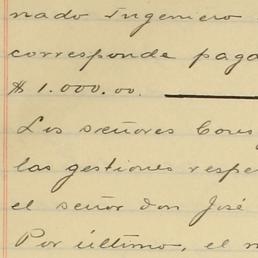 nado Ingeniero
corresponde paga
$ 1.000.00.
Los señores Cons
las gestiones respe
el señor don José
Por último, el n